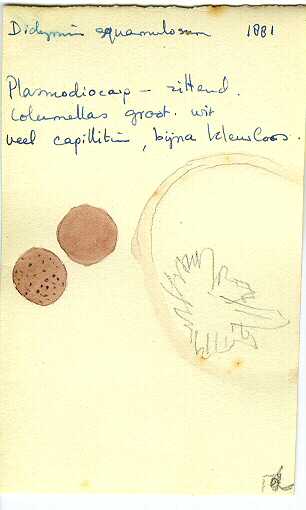 Didymium squamulosum 1881
Plasmodiocarp – zittend.
Columellas groot. wit
veel capillitium, bijna kleurloos.